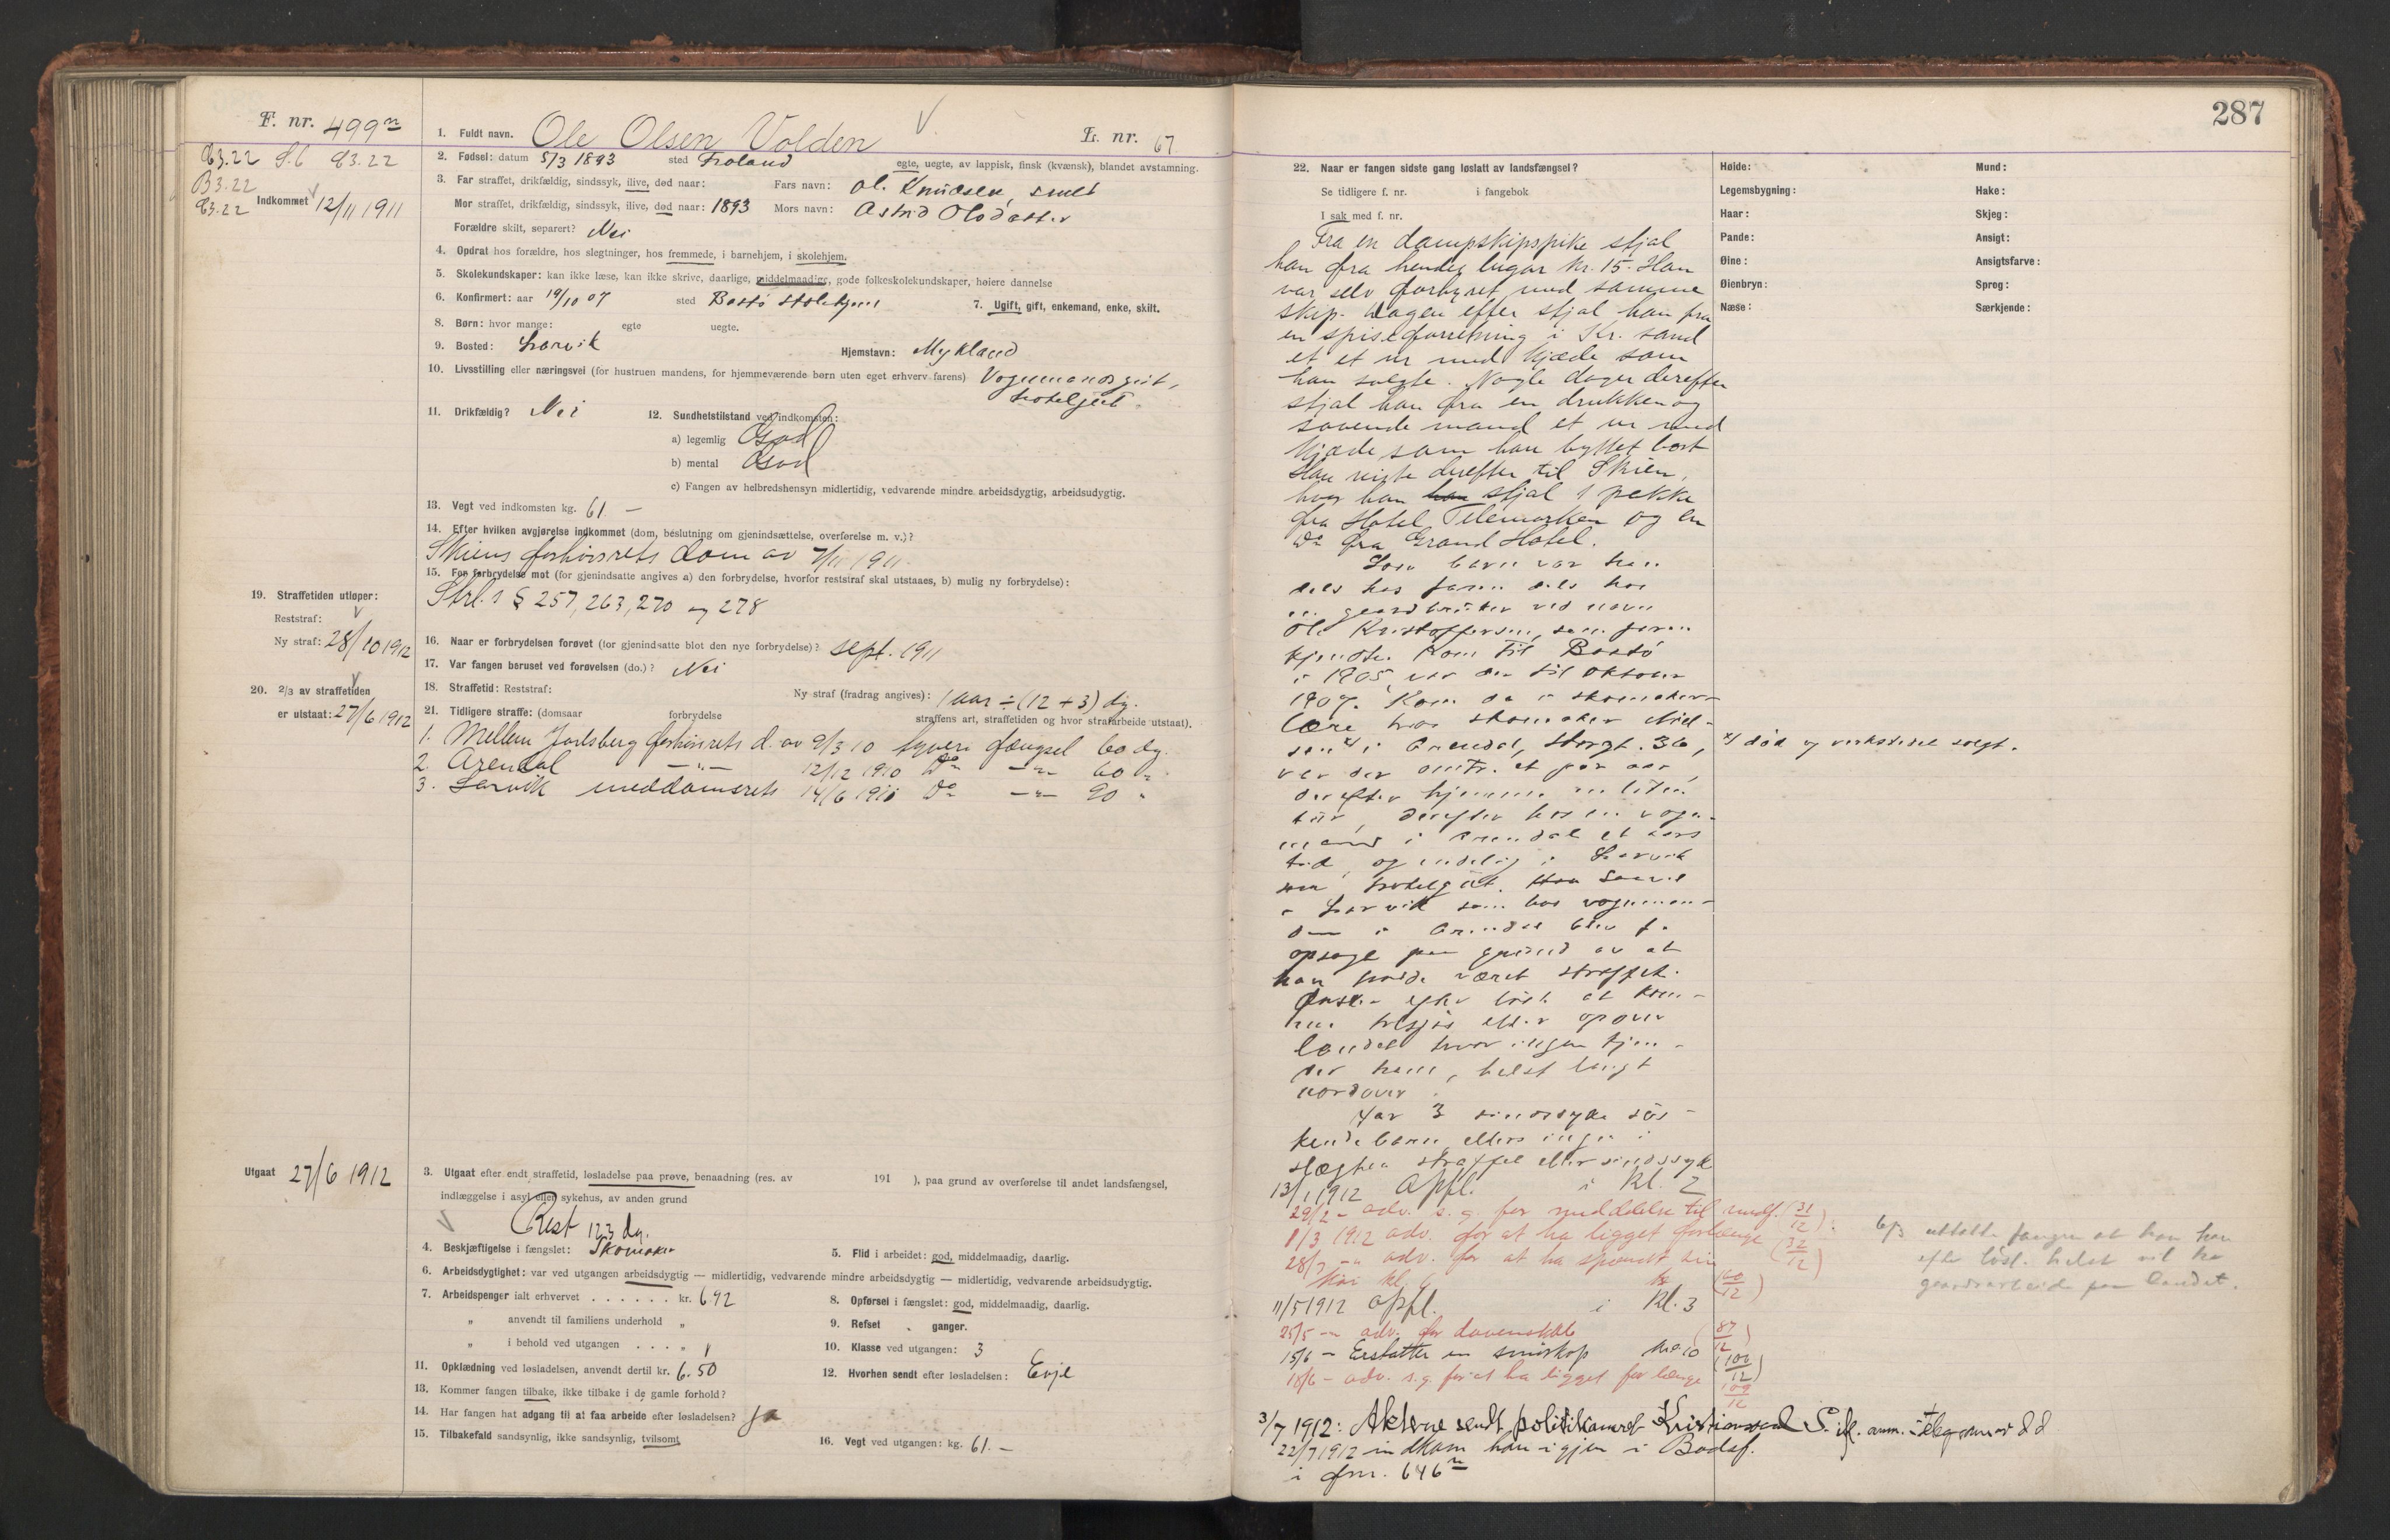 F. nr. 499ⁿ
93.22 S.C 93.22
B 3.22
93.22
Indkommet 12/11 1911
1. Fuldt navn. Ole Olsen Volden
L. nr. 67
2. Fødsel: datum 5/3 1893 sted Froland egte, uegte, av lappisk, finsk (kvænsk), blandet avstamning.
3. Far straffet, drikfældig, sindssyk, ilive, død naar: Fars navn: Ole Knudsen, smed
Mor straffet, drikfældig, sindssyk, ilive, død naar: 1893 Mors navn: Astrid Olsdatter
Forældre skilt, separert? Nei
4. Opdrat hos forældre, hos slegtninger, hos fremmede, i barnehjem, i skolehjem.
5. Skolekundskaper: kan ikke læse, kan ikke skrive, daarlige, middelmaadige, gode folkeskolekundskaper, høiere dannelse
6. Konfirmert: aar 19/10 07 sted Bastö skolehjem 7. Ugift, gift, enkemand, enke, skilt.
8. Børn: hvor mange: egte uegte.
9. Bosted: Larvik Hjemstavn: Mykland
10. Livsstilling eller næringsvei (for hustruen mandens, for hjemmeværende børn uten eget erhverv farens) Vognmandsgut,
hotelgut.
11. Drikfældig? Nei 12. Sundhetstilstand ved indkomsten:
a) legemlig God
b) mental God
c) Fangen av helbredshensyn midlertidig, vedvarende mindre arbeidsdygtig, arbeidsudygtig.
13. Vegt ved indkomsten kg. 61 –
14. Efter hvilken avgjørelse indkommet (dom, beslutning om gjenindsættelse, overførelse m. v.)?
Skiens forhörsrets dom av 7/11 1911
15. For forbrydelse mot (for gjenindsatte angives a) den forbrydelse, hvorfor reststraf skal utstaaes, b) mulig ny forbrydelse):
Strl.s § 257, 263, 270 og 278
19. Straffetiden utløper:
Reststraf:
Ny straf: 28/10 1912
16. Naar er forbrydelsen forøvet (for gjenindsatte blot den nye forbrydelse)? sept. 1911
17. Var fangen beruset ved forøvelsen (do.)? Nei
18. Straffetid: Reststraf: Ny straf (fradrag angives): 1 aar ÷ (12 + 3) dg.
20. 2/3 av straffetiden
er utstaat: 27/6 1912
21. Tidligere straffe: (domsaar forbrydelse straffens art, straffetiden og hvor strafarbeide utstaat).
1. Mellem Jarlsberg forhörsrets d. av 9/3 10 tyveri fængsel 60 dg.
2. Arendal –"– 12/12 1910 Do –"– 60 "
3. Larvik meddomsrets 14/6 1910 Do –"– 90 "
Utgaat 27/6 1912
3. Utgaat efter endt straffetid, løsladelse paa prøve, benaadning (res. av 191 ), paa grund av overførelse til andet landsfængsel,
indlæggelse i asyl eller sykehus, av anden grund
Rest 123 dg.
4. Beskjæftigelse i fængslet: Skomaker 5. Flid i arbeidet: god, middelmaadig, daarlig.
6. Arbeidsdygtighet: var ved utgangen arbeidsdygtig — midlertidig, vedvarende mindre arbeidsdygtig — midlertidig, vedvarende arbeidsudygtig.
7. Arbeidspenger ialt erhvervet . . . . . . kr. 6.92 8. Opførsel i fængslet: god, middelmaadig, daarlig.
" anvendt til familiens underhold " 9. Refset . ganger.
" i behold ved utgangen . . . " 10. Klasse ved utgangen: 3
11. Opklædning ved løsladelsen, anvendt dertil kr. 6.50 12. Hvorhen sendt efter løsladelsen: Evje
13. Kommer fangen tilbake, ikke tilbake i de gamle forhold?
14. Har fangen hat adgang til at faa arbeide efter løsladelsen? Ja
15. Tilbakefald sandsynlig, ikke sandsynlig, tvilsomt 16. Vegt ved utgangen: kg. 61. –
287
22. Naar er fangen sidste gang løslatt av landsfængsel?
Se tidligere f. nr. i fangebok
I sak med f. nr.
Høide: Mund:
Legemsbygning: Hake:
Haar: Skjeg:
Pande: Ansigt:
Øine: Ansigtsfarve:
Øienbryn: Sprog:
Næse: Særkjende:
Fra en dampskipspike stjal
han fra hendes lugar kr. 15. Han
var selv forhyret med samme
skip. Dagen efter stjal han fra
en spiseforretning i Kr. sand
et et ur med kjæde som
han solgte. Nogle dager derefter
stjal han fra en drukken og
sovende mand et ur med
kjæde som han byttet bort
Han reiste derefter til Skien,
hvor han han stjal 1 frakke
fra Hotel Telemarken og en
Do fra Grand Hotel.
Som barn var han
dels hos faren dels hos
en gaardbruker ved navn
Ole Kristoffersen, som faren
kjendte. Kom til Bastö
i 1905 var der til oktober
1907. Kom da i skomaker-
lære hos skomaker Niel-
sen x) i Arendal, Storgt. 36,
x) död og verkstedet solgt.
var der omtr. et par aar,
derefter hjemme en liten
tur, derefter hos en vogn-
mand i Arendal et aars
tid, og endelig i Larvik
som hotelgut. Han saavel
i Larvik som hos vognman-
den i Arendal blev f.
opsagt paa grund av at
han hadde været straffet.
Önsker efter lösl. at kom-
me tilsjös eller opover
landet hvor ingen kjen-
der ham, helst langt
nordover.
Har 3 sindssyke sös-
kendebarn, ellers ingen i
slægten straffet eller sindssyk
13/1 1912 Opfl. i Kl. 2
29/2 – adv. s. g. for meddelelse til medf. (31/12)
1/3 1912 adv. for at ha ligget forlænge (32/12)
28/3 –" adv. for at ha spændt sin
(60/12)
6/3 uttalte fangen at han han
efter lösl. helst vil ha
gaardsarbeide paa landet.
11/5 1912 Opfl. i Kl. 3
25/5 –" adv. for dovenskab (87/12)
15/6 – Erstatter en smörkop kr. 0.10 (106/12)
18/6 – adv. s. g. for at ha ligget for længe 109/12
3/7 1912: Aktene sendt politikamret Kristiansand S. ifl. anm. i telegram av d.d
22/7 1912 indkom han igjen i Bodsf.
i fnr. 646ⁿ